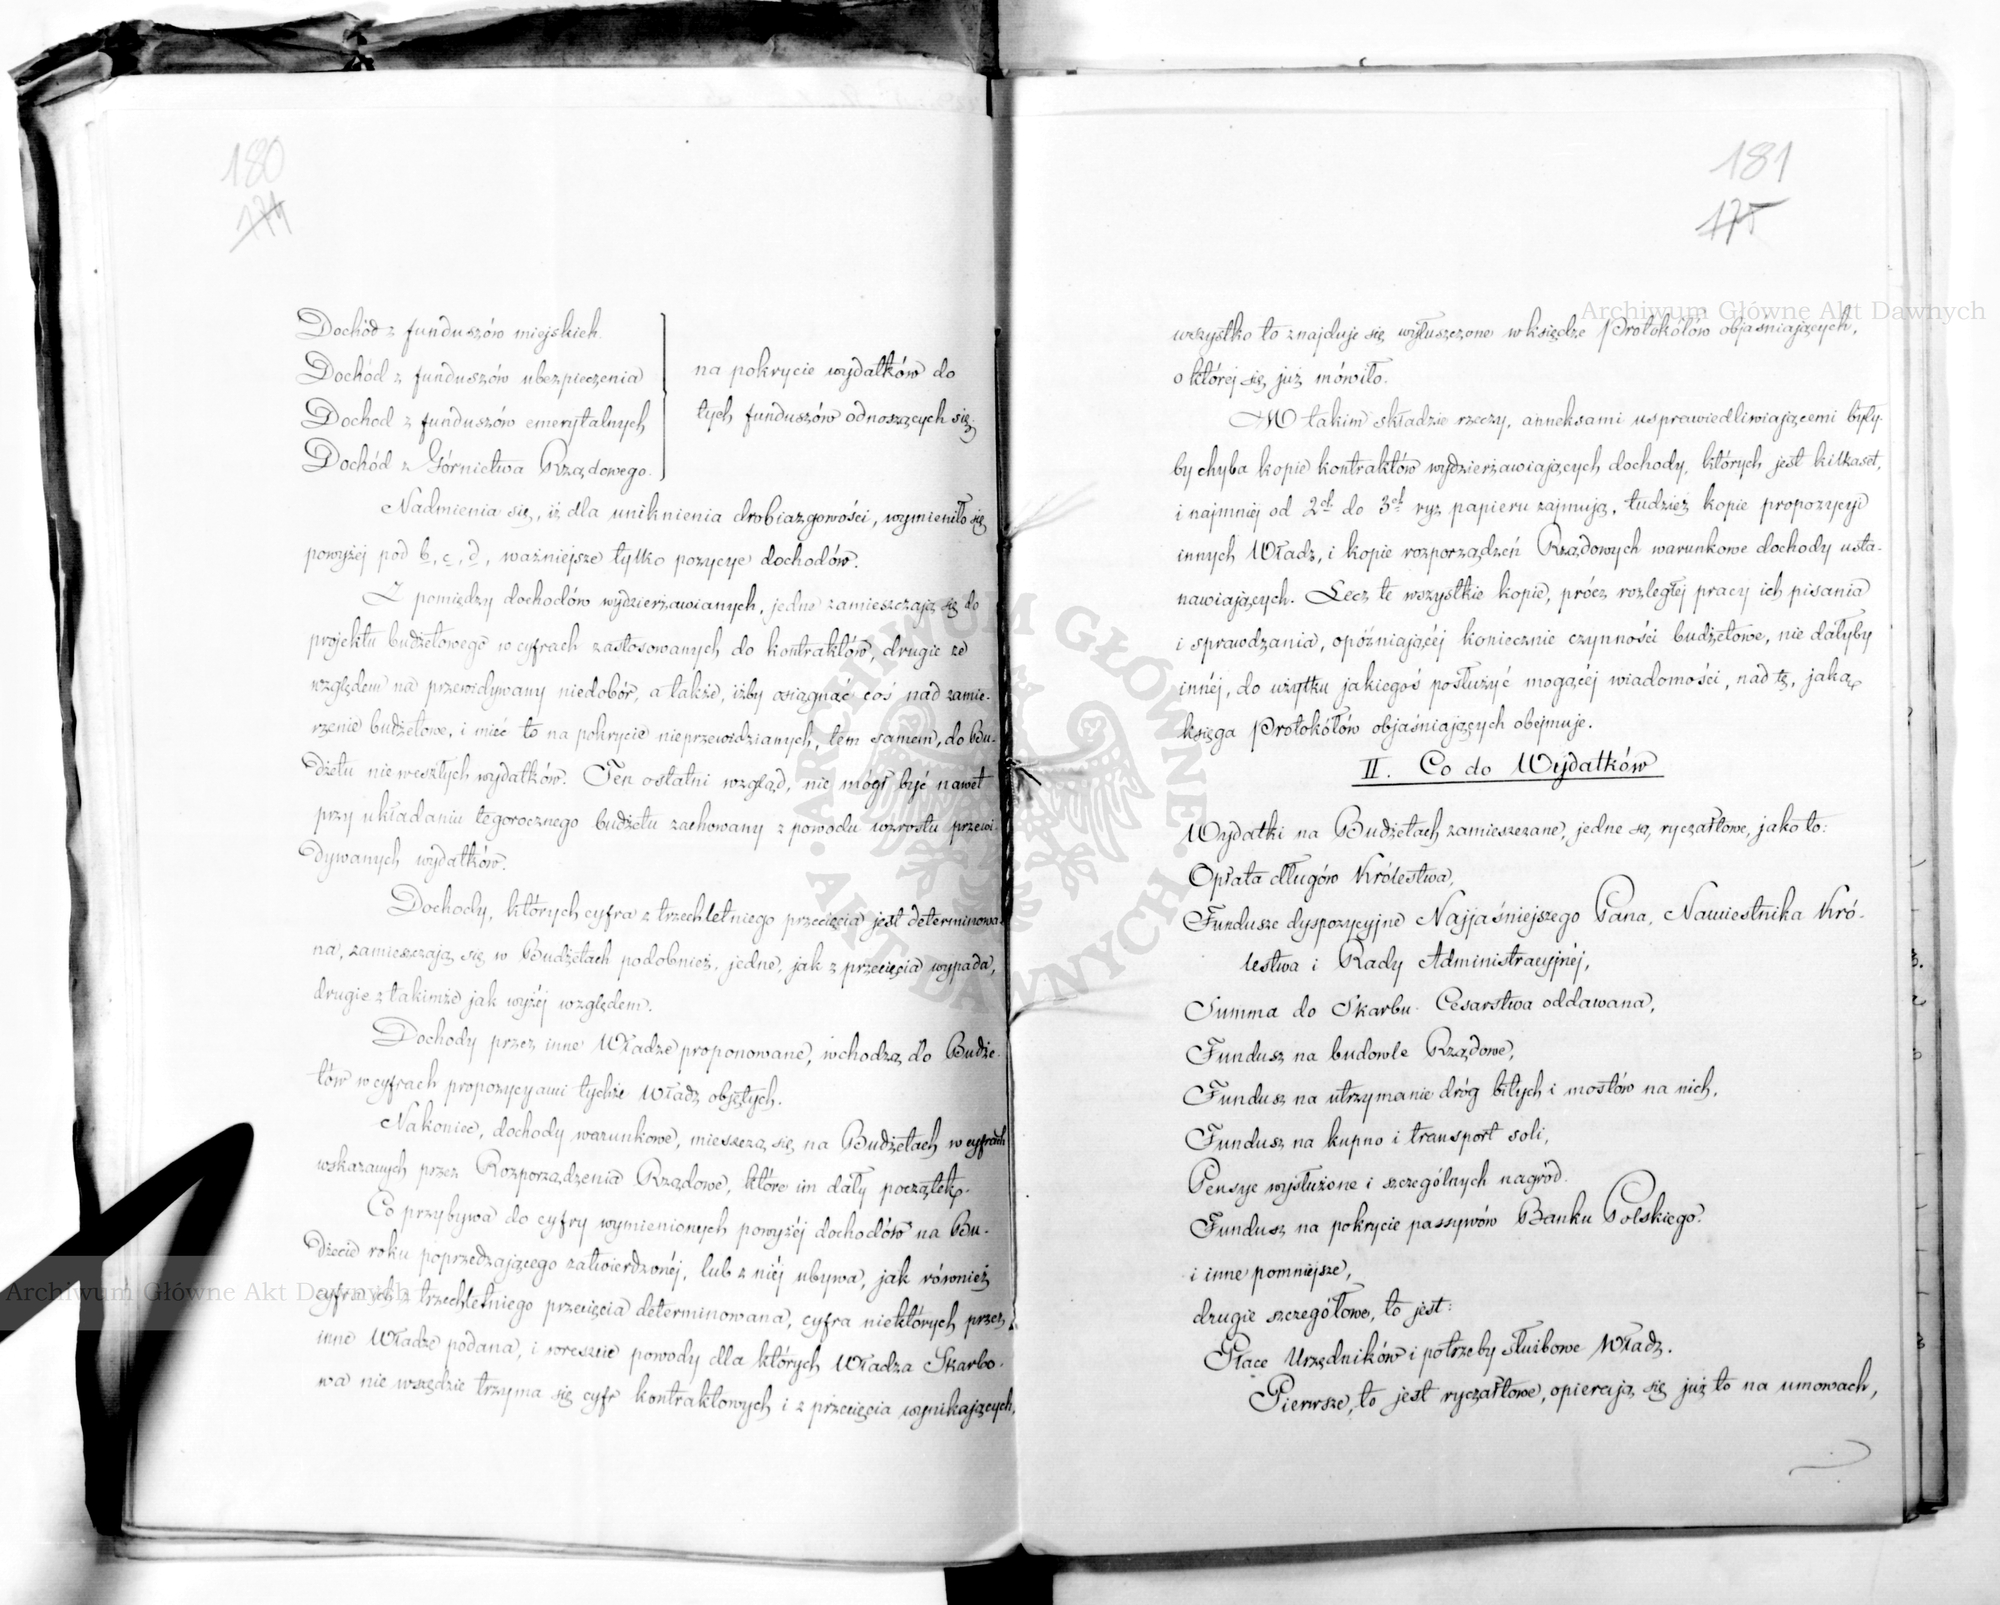 180
174
Dochód z funduszów miejskich.
Dochód z funduszów ubezpieczenia
Dochod z funduszów emerytalnych
Dochód z Górnictwa Rządowego.
na pokrycie wydatków do
tych funduszów odnoszących się.
Nadmienia się, iż dla uniknienia drobiazgowości, wymieniło się
powyżej pod b, c, d, ważniejsze tylko pozycye dochodów.
Z pomiędzy dochodów wydzierżawianych, jedne zamieszczają się do
projektu budżetowego w cyfrach zastosowanych do kontraktów, drugie ze
względem na przewidywany niedobór, a także, iżby osiągnąć coś nad zamie-
rzenie budżetowe, i mieć to na pokrycie nieprzewidzianych, tem samem, do Bu-
dżetu nieweszłych wydatków. Ten ostatni wzgląd, nie mógł być nawet
przy układaniu tegorocznego budżetu zachowany z powodu wzrostu przewi-
dywanych wydatków.
Dochody, których cyfra z trzechletniego przecięcia jest determinowa-
na, zamieszczają się w Budżetach podobnież, jedne, jak z przecięcia wypada,
drugie z takimże jak wyżej względem.
Dochody przez inne Władze proponowane, wchodzą do Budże-
tów w cyfrach propozycyami tychże Władz objętych.
Nakoniec, dochody warunkowe, mieszczą się na Budżetach w cyfrach
wskazanych przez Rozporządzenia Rządowe, które im dały początek.
Co przybywa do cyfry wymienionych powyżej dochodów na Bu-
dżecie roku poprzedzającego zatwierdzonéj, lub z niéj ubywa, jak również
cyfra ich z trzechletniego przecięcia determinowana, cyfra niektórych przez
inne Władze podana, i wreszcie powody dla których Władza Skarbo-
wa nie wszędzie trzyma się cyfr kontraktowych i z przecięcia wynikających,
181
175
wszystko to znajduje się wyłuszczone w księdze Protokółów objaśniających,
o któréj się już mówiło.
W takim składzie rzeczy, anneksami usprawiedliwiającemi były-
by chyba kopie kontraktów wydzierżawiających dochody, których jest kilkaset,
i najmniéj od 2ch do 3ch ryz papieru zajmują, tudzież kopie propozycyi
innych Władz, i kopie rozporządzeń Rządowych warunkowe dochody usta-
nawiających. Lecz te wszystkie kopie, prócz rozległéj pracy ich pisania
i sprawdzania, opóźniającéj koniecznie czynności budżetowe, nie dałyby
innéj, do użytku jakiegoś posłużyć mogącéj wiadomości, nad tę, jaką
księga Protokółów objaśniających obejmuje.
II. Co do Wydatków
Wydatki na Budżetach zamieszczane, jedne są, ryczałtowe, jako to:
Opłata długów Królestwa,
Fundusze dyspozycyjne Najjaśniejszego Pana, Namiestnika Kró-
lestwa i Rady Administracyjnéj,
Summa do Skarbu Cesarstwa oddawana,
Fundusz na budowle Rządowe,
Fundusz na utrzymanie dróg bitych i mostów na nich,
Fundusz na kupno i transport soli,
Pensye wysłużone i szczególnych nagród.
Fundusz na pokrycie passywów Banku Polskiego.
i inne pomniejsze,
drugie szczegółowe, to jest:
Płace Urzędników i potrzeby służbowe Władz.
Pierwsze, to jest ryczałtowe, opierają się już to na umowach,
Archiwum Główne Akt Dawnych
Archiwum Główne Akt Dawnych
ARCHIWUM GŁÓWNE
AKT DAWNYCH